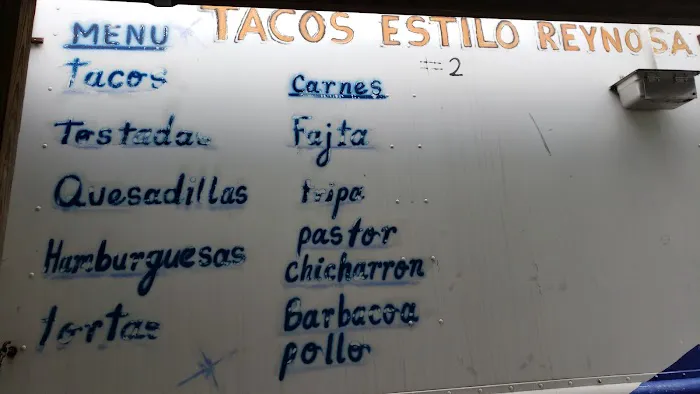 MENU
TACOS ESTILO REYNOSA
#2
Tacos
Tostadas
Quesadillas
Hamburguesas
tortas
Carnes
Fajta
tripa
pastor
chicharron
Barbacoa
pollo